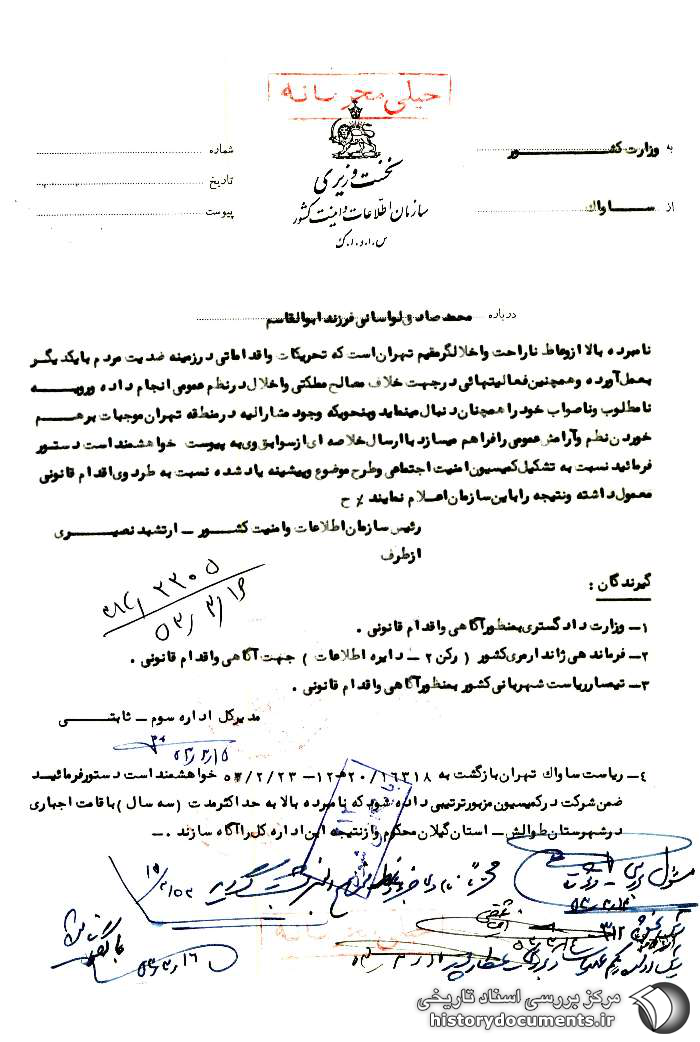 خیلی محرمانه
به وزارت کشور
شماره
نخست وزیری
تاریخ
سازمان اطلاعات و امنیت کشور
از ساواك
پیوست
س.ا.و.ا.ك
درباره محمد صادق لواسانی فرزند ابوالقاسم
نامبرده بالا از وعاظ ناراحت و اخلالگر مقیم تهران است که تحریکات و اقداماتی در زمینه ضدیت مردم با یکدیگر
بعمل آورده و همچنین فعالیتهائی در جهت خلاف مصالح مملکتی و اخلال در نظم عمومی انجام داده و رویه
نامطلوب و ناصواب خود را همچنان دنبال مینماید و بنحویکه وجود مشارالیه در منطقه تهران موجبات بر هم
خوردن نظم و آرامش عمومی را فراهم میسازد با ارسال خلاصه ای از سوابق وی به پیوست خواهشمند است دستور
فرمائید نسبت به تشکیل کمیسیون امنیت اجتماعی و طرح موضوع و پیشینه یاد شده نسبت به طرد وی اقدام قانونی
معمول داشته و نتیجه را باین سازمان اعلام نمایند % ح
رئیس سازمان اطلاعات و امنیت کشور ـ ارتشبد نصیری
از طرف
گیرندگان :
۳۱۲/ ۲۲۰۵
۵۳/۳/۱۶
۱ـ وزارت دادگستری بمنظور آگاهی و اقدام قانونی .
۲ـ فرماندهی ژاندارمری کشور ( رکن ۲ ـ دایره اطلاعات ) جهت آگاهی و اقدام قانونی .
۳ـ تیمسار ریاست شهربانی کشور بمنظور آگاهی و اقدام قانونی .
مدیرکل اداره سوم ـ ثابتی
۵۳/۳/۱۵
۴ـ ریاست ساواك تهران بازگشت به ۱۶۳۱۸/۲۰ﻫ۱۲ ـ ۵۳/۲/۲۳ خواهشمند است دستور فرمائید
ضمن شرکت در کمیسیون مزبور ترتیبی داده شود که نامبرده بالا به حداکثر مدت ( سه سال ) باقامت اجباری
در شهرستان طوالش ـ استان گیلان محکوم و از نتیجه این اداره کل را آگاه سازند .ـ
۳۱۲
۵۳/۳/۱۶
خیلی محرمانه
مرکز بررسی اسناد تاریخی
historydocuments.ir